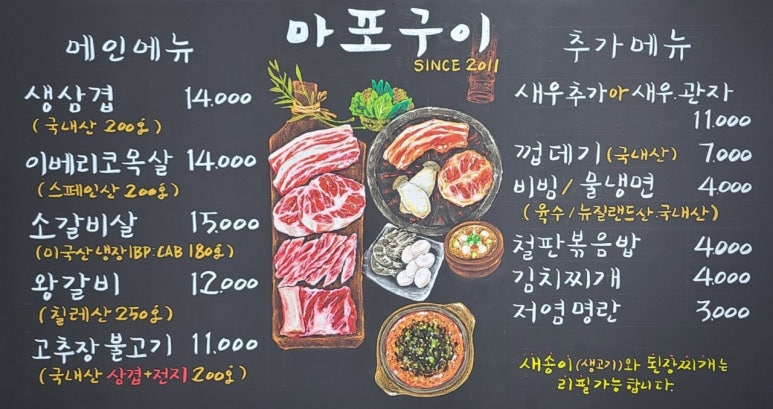 마포구이
SINCE 2011
메인메뉴
생삼겹 14.000
(국내산 200g)
이베리코목살 14.000
(스페인산 200g)
소갈비살 15.000
(미국산 냉장 IBP.CAB 180g)
왕갈비 12.000
(칠레산 250g)
고추장불고기 11.000
(국내산 삼겹+전지 200g)
추가메뉴
새우추가아 새우.관자
11.000
껍데기 (국내산) 7.000
비빔/물냉면 4.000
(육수/뉴질랜드산.국내산)
철판볶음밥 4.000
김치찌개 4.000
저염명란 3.000
새송이(생고기)와 된장찌개는
리필가능합니다.